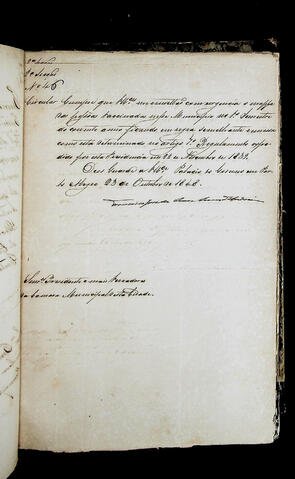 2ª Secção
Nº 46
Circular Cumpre que VMces me remettão com urgencia o mappa
das pessoas vaccinadas nesse Municipio no 1º Semestre
do corrente anno, ficando em regra semelhante remessa
como está determinado no artigo 7º do Regulamento expe-
dido por esta Presidencia em 28 de Fevereiro de 1839.
Deus Guarde a VMces Palacio do Governo em Por-
to Alegre 23 de Outubro de 1848.
Senres Presidente e mais Vereadores
da Camara Municipal desta Cidade.